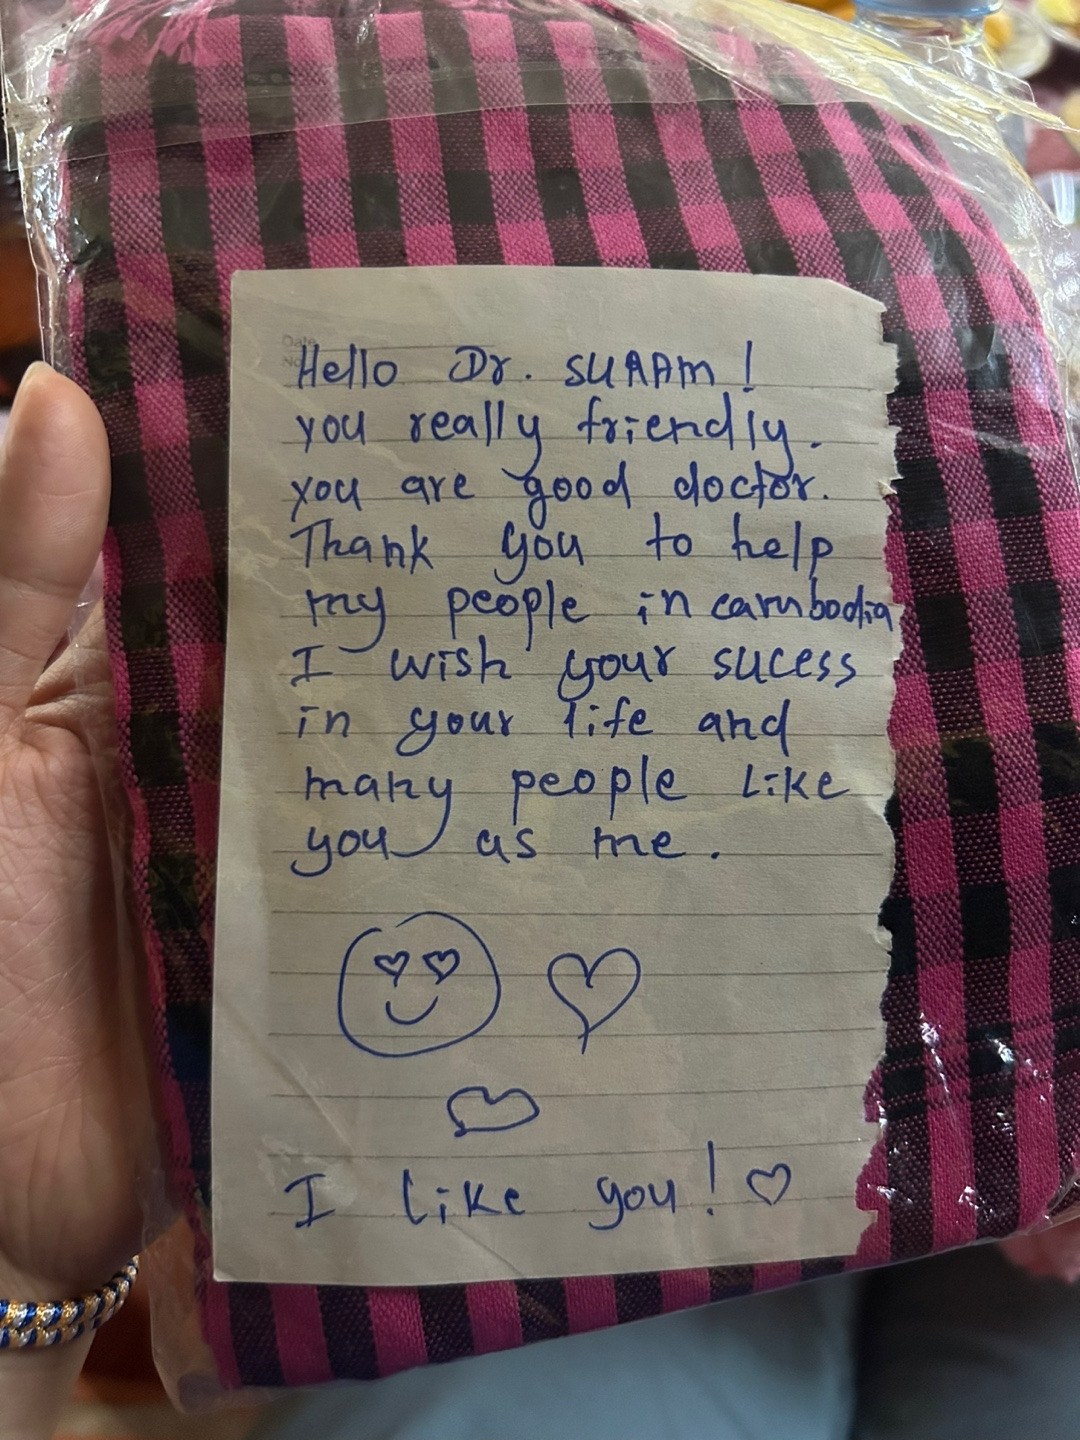 Date
No
Hello Dr. SUAAM !
you really friendly.
you are good doctor.
Thank you to help
my people in cambodia
I wish your sucess
in your life and
many people like
you as me.
I like you! ♡